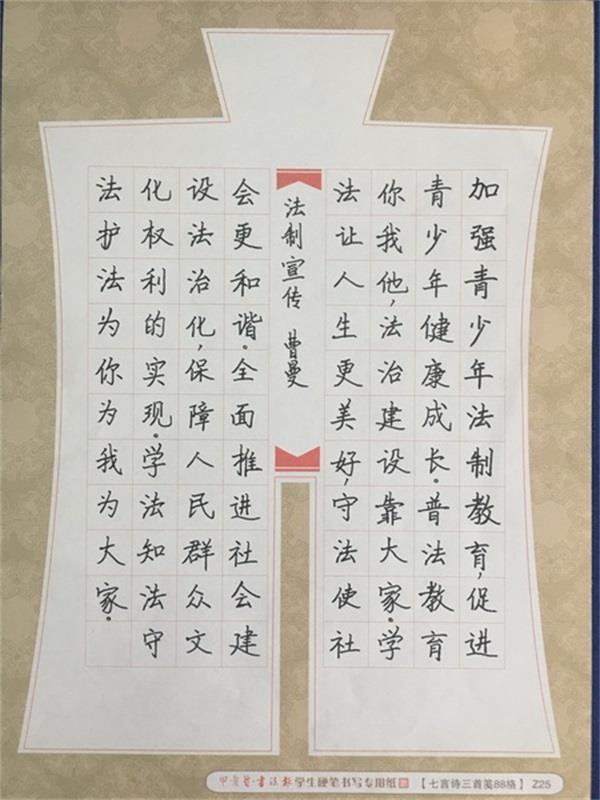 加强青少年法制教育，促进
青少年健康成长。普法教育
你我他，法治建设靠大家。学
法让人生更美好，守法使社
法制宣传 曹曼
会更和谐。全面推进社会建
设法治化，保障人民群众文
化权利的实现。学法知法守
法护法为你为我为大家。
学生硬笔书写专用纸 【七言诗三首笺88格】 Z25